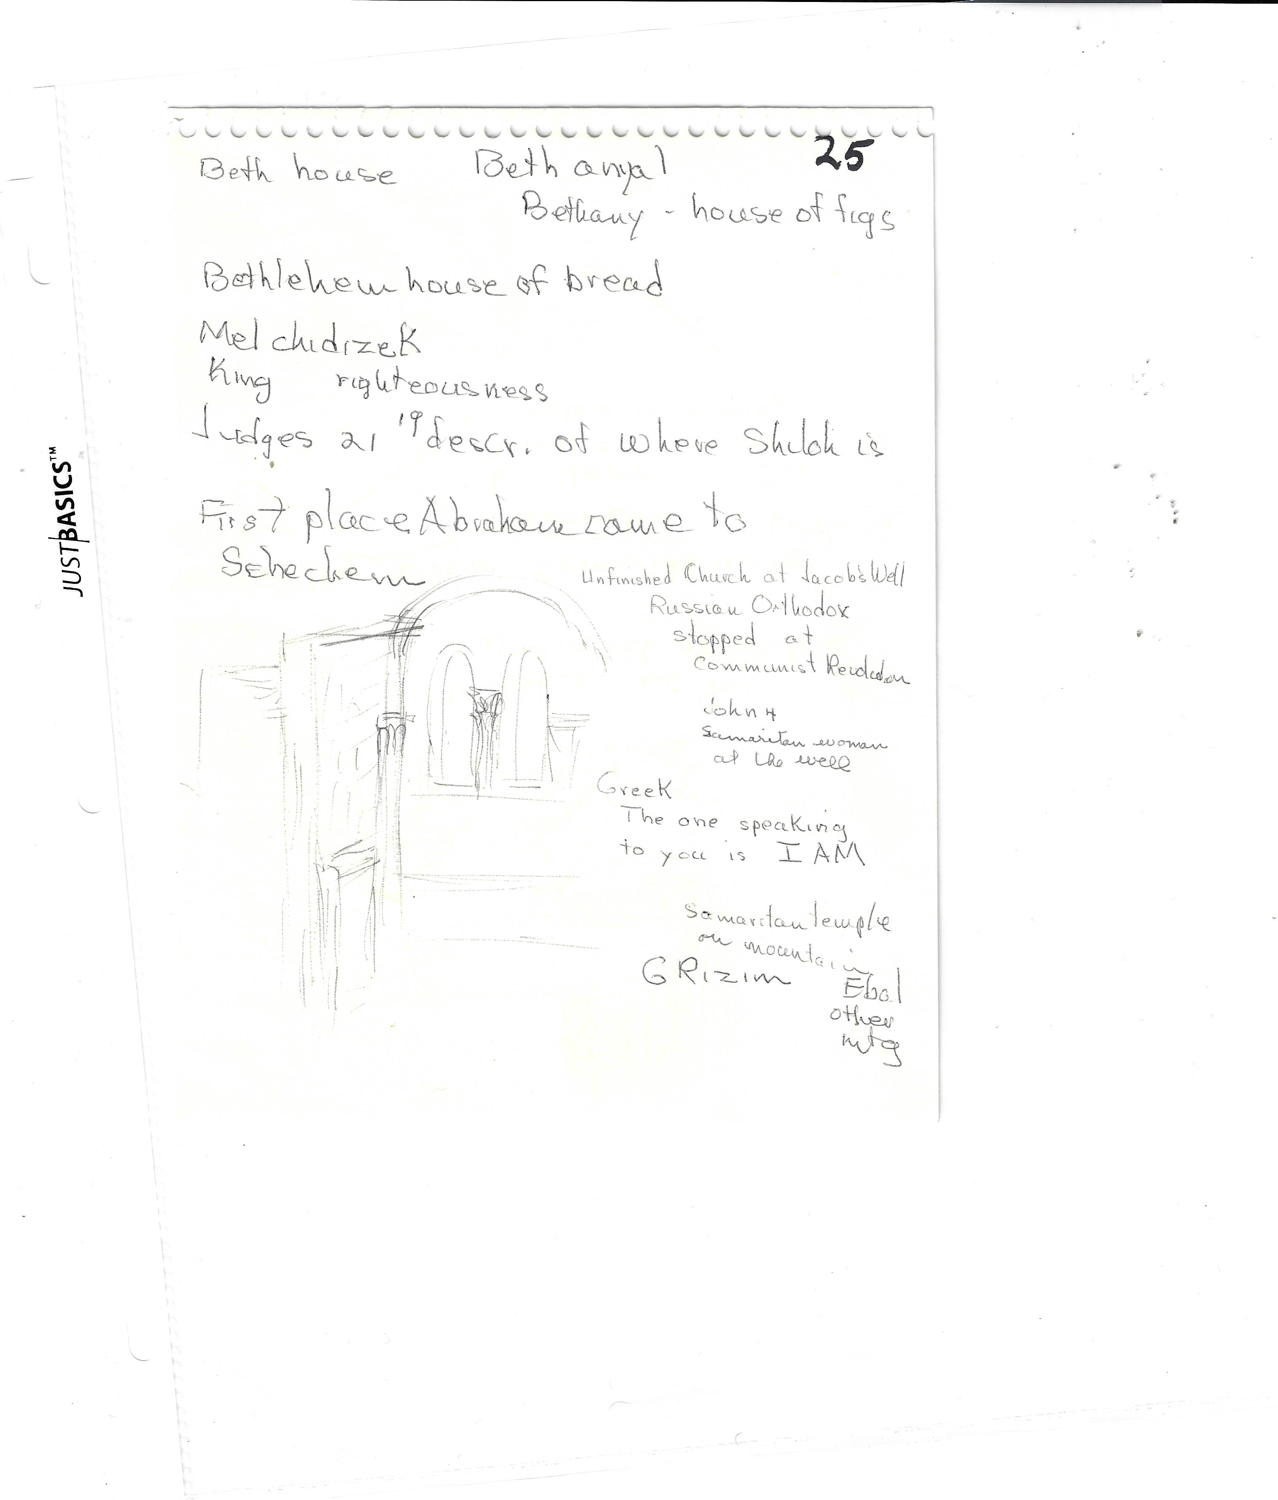 25
Beth house Beth anyal
Bethany - house of figs
Bethlehem house of bread
Melchidizek
King righteousness
Judges 21 19 descr. of where Shiloh is
First place Abraham came to
Schechem
Unfinished Church at Jacob's Well
Russian Orthodox
stopped at
Communist Revolution
John 4
Samaritan woman
at the well
Greek
The one speaking
to you is I AM
Samaritan temple
on mountain
GRizim Ebal
other
mtg
JUSTBASICS™